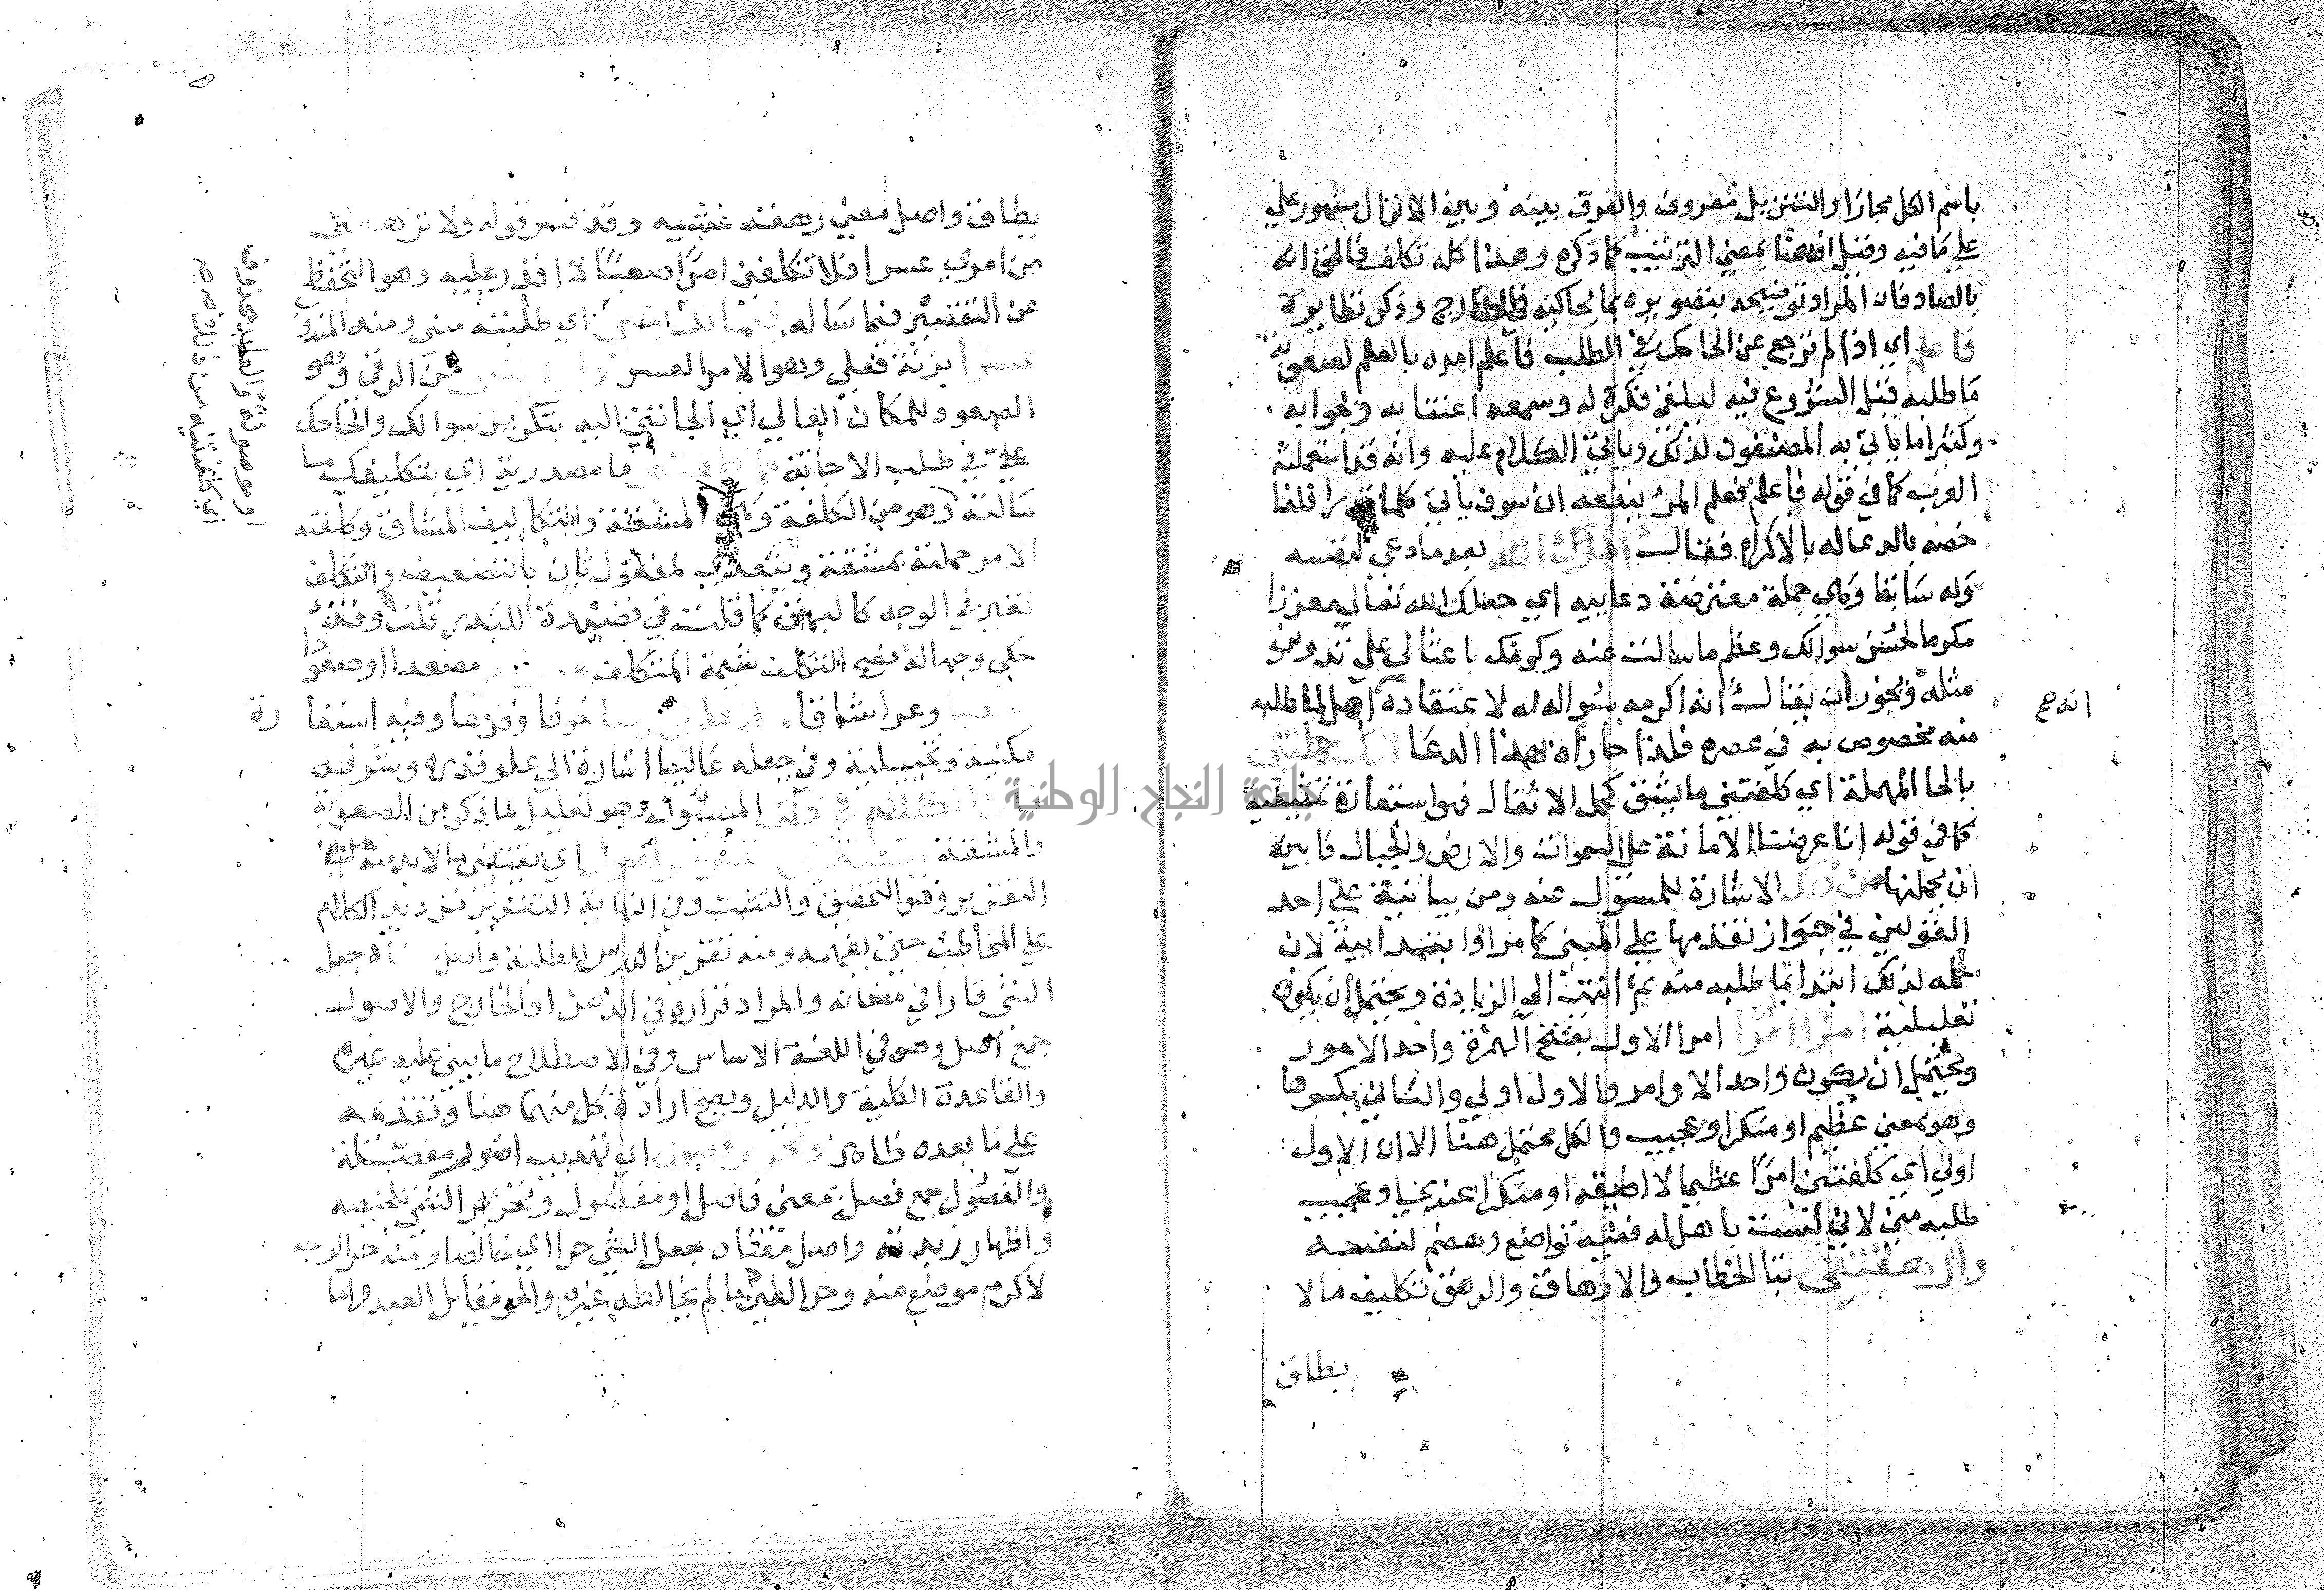 باسم الكل مجازا والتنزيل معروف والفرق بينه وبين الانزال مشهور علي
علي ما فيه وقيل انه هنا بمعني الترتيب كما ذكره وهذا كله تكلف فالحق انه
بالصاد فان المراد توضيحه بتصويره بما يحاكيه في الخارج وذكر نظايره لا
فاعلم اي اذا لم ترجع عن الحاحك في الطلب فاعلم امره بالعلم لصعوبة
ما طلبه قبل الشروع فيه ليلقي فكره له وسمعه اعتنا به وبجوابه
وكثيرا ما ياتي به المصنفون لذلك وياتي الكلام عليه وانه قد استعملته
العرب كما في قوله فاعلم فعلم المرء ينفعه ان سوف ياتي كلما قدرا فلذا
خصه بالدعا له بالاكرام فقال اكرمك الله بعد ما دعي لنفسه
وله سابقا وهي جملة معترضة دعاييه اي جعلك الله تعالي معززا
مكرما لحسن سوالك وعظم ما سالت عنه وكونك باعثا لي علي تدوين
مثله ويجوز ان يقال انه اكرمه بسواله له لاعتقاده اهل لما طلبه
انه صح
منه مخصوص به في عصره فلذا جازاه بهذا الدعا انك حملتني
بالحا المهملة اي كلفتني ما يشق كحمل الاثقال فهو استعارة تمثيلية
كما في قوله انا عرضنا الامانة علي السموات والارض والجبال فابين
ان يحملنها من ذلك الاشارة للمسول عنه ومن بيانية علي احد
القولين في جواز تقدمها علي المبين كما مر او ابتدايية لان
حمله لذلك ابتدا بما طلبه منه ثم انتهت الي الزيادة ويحتمل ان يكون
تعليلية امرا امرا امرا الاول بفتح الهمزة واحد الامور
ويحتمل ان يكون واحد الاوامر والاول اولي والثاني بكسرها
وهو بمعني عظيم او منكر او عجيب والكل محتمل هنا الا ان الاول
اولي اي كلفتني امرا عظيما لا اطيقه او منكرا عندي او عجيب
طلبه مني لاني لست باهل له ففيه تواضع وهضم لنفسه
وارهقتني بتا الخطاب والارهاق والرهق تكليف ما لا
يطاق
يطاق واصل معني رهقه غشيه وقد فسر قوله ولا ترهقني
من امري عسرا فلا تكلفني امرا صعبا لا اقدر عليه وهو التحفظ
عن التقصير فيما ساله فيما ندبتني اي طلبته مني ومنه المندوب
عسرا بزنة فعلي وهو الامر العسر من الرقي وهو
الصعود للمكان العالي اي الجاتني اليه بتكرير سوالك والحاحك
علي في طلب الاجابة ما مصدرية اي بتكليفك ما
سالته وهو من الكلفة وهي المشقة والتكاليف المشاق وكلفته
الامر حملته بمشقة ويتعدي لمفعول ثان بالتضعيف والتكلف
تغير في الوجه كالبهق كما قلت في قصيدة للبدر قلت وقد
حكي وجها له قبح التكلف شيمة المتكلف مصعدا او صعودا
صعبا وعرا شاقا خوفا وفزعا وفيه استعارة
مكنية وتخييلية وفي جعله عاليا اشارة الي علو قدره وشرفه
فان الكلام في ذلك المسول وهو تعليل لما ذكر من الصعوبة
والمشقة يستدعي تقرير اصول اي يقتضي ما لا بد منه
التقرير وهو التحقيق والتثبت وفي النهاية التقرير ترديد الكلام
علي المخاطب حتي يفهمه ومنه تقرير الدرس للطلبة واصل معناه جعل
الشي قارا في مكانه والمراد قراره في الذهن او الخارج والاصول
جمع اصل وهو في اللغة الاساس وفي الاصطلاح ما يبني عليه غيره
والقاعدة الكلية والدليل ويصح ارادة كل منهما هنا وتقدمه
علي ما بعده ظاهر وتحرير فصول اي تهذيب اصول مفصلة
والفصول جمع فصل بمعني فاصل او مفصول وتحرير الشي تلخيصه
واظهار زبدته واصل معناه جعل الشي حرا اي خالصا ومنه حر الوجه
لاكرم موضع منه وحر الطين ما لم يخالطه غيره والحر مقابل العبد واما